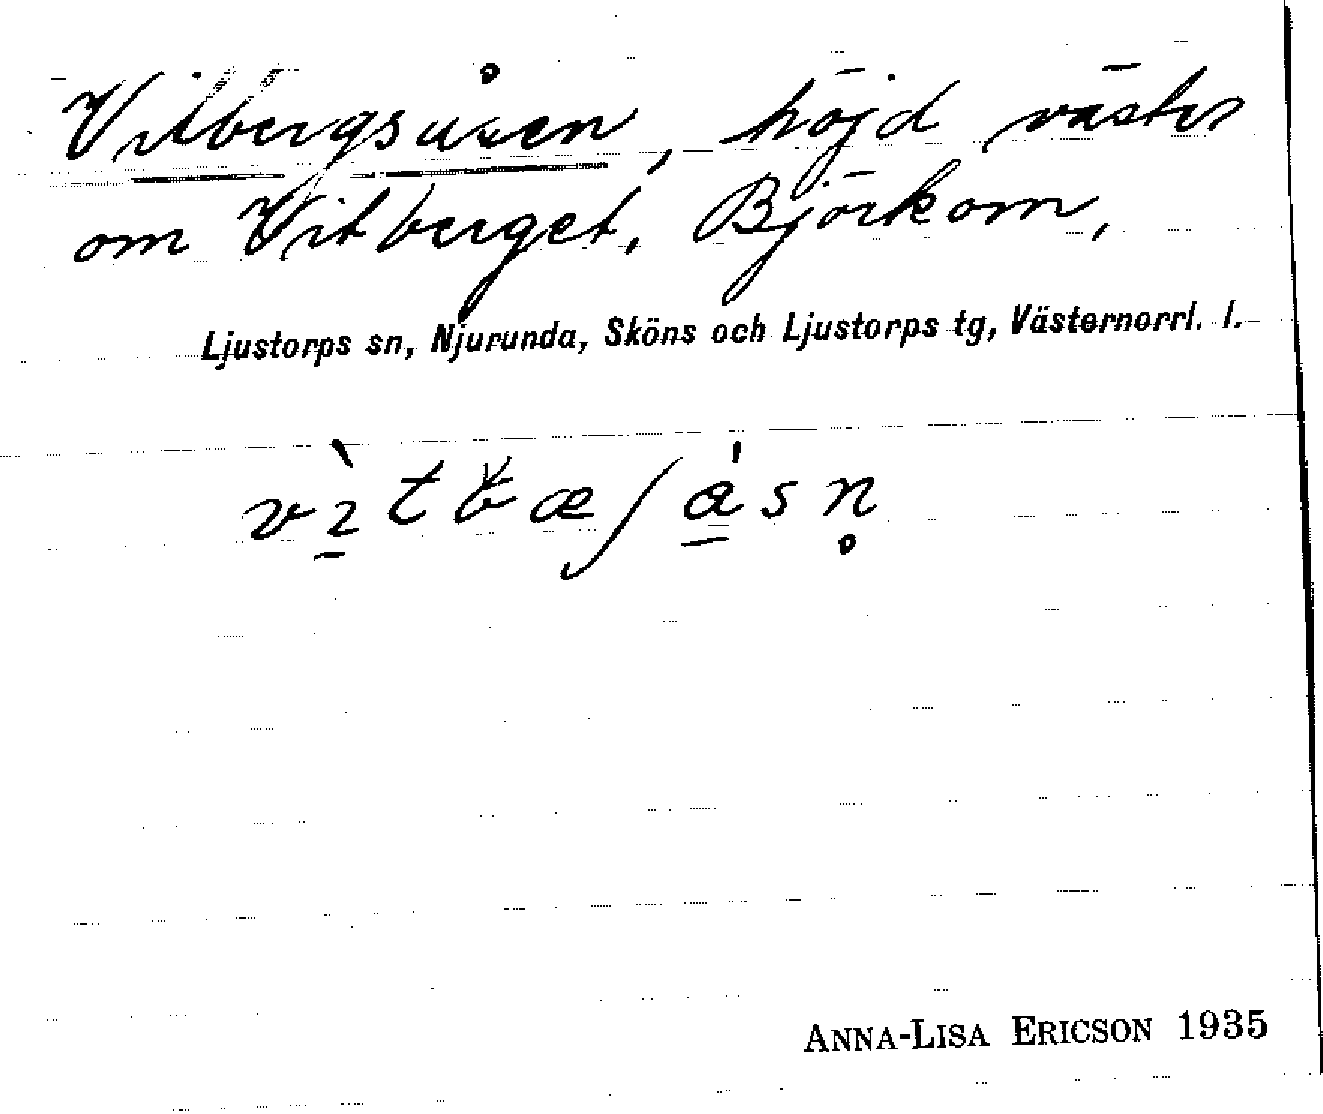 Vitbergsåsen, höjd väster
om Vitberget, Björkom,
Ljustorps sn, Njurunda, Sköns och Ljustorps tg, Västernorrl. l.
ANNA-LISA ERICSON 1935